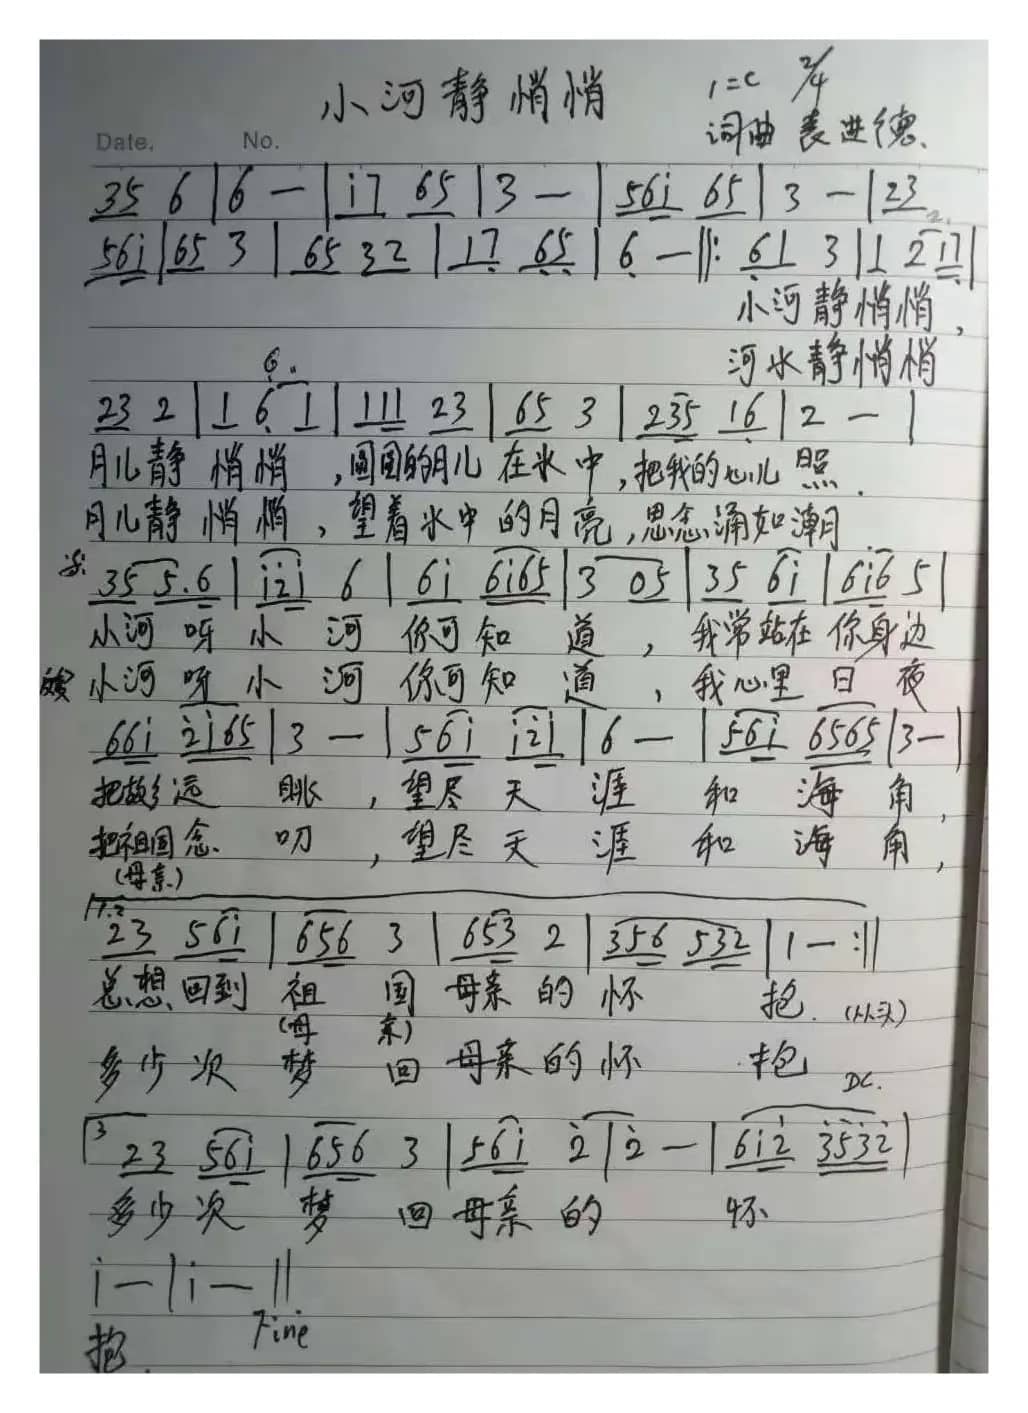 小河静悄悄
1=C 2/4
Date. No.
词曲 袁进德.
35 6 | 6 — | i7 65 | 3 — | 56i 65 | 3 — | 23
56i | 65 3 | 65 32 | 17 65 | 6 — ‖: 61 3 | 1 2 17 |
小河静悄悄,
河水静悄悄
23 2 | 1 6 1 | 111 23 | 65 3 | 235 16 | 2 — |
月儿静悄悄,圆圆的月儿在水中,把我的心儿照.
月儿静悄悄,望着水中的月亮,思念涌如潮
35 5.6 | i2i 6 | 6i 6i65 | 3 05 | 35 6i | 6i6 5 |
小河呀小河你可知道,我常站在你身边
小河呀小河你可知道,我心里日夜
66i 2i65 | 3 — | 56i i2i | 6 — | 56i 6565 | 3— |
把故乡远眺,望尽天涯和海角,
把祖国念叨,望尽天涯和海角,
(母亲)
1.2
23 56i | 656 3 | 653 2 | 356 532 | 1 — :‖
总想回到祖国母亲的怀抱. (从头)
(母亲)
多少次梦回母亲的怀抱 DC.
3
23 56i | 656 3 | 56i 2 | 2 — | 6i2 3532 |
多少次梦回母亲的怀
i — | i — ‖
抱. Fine